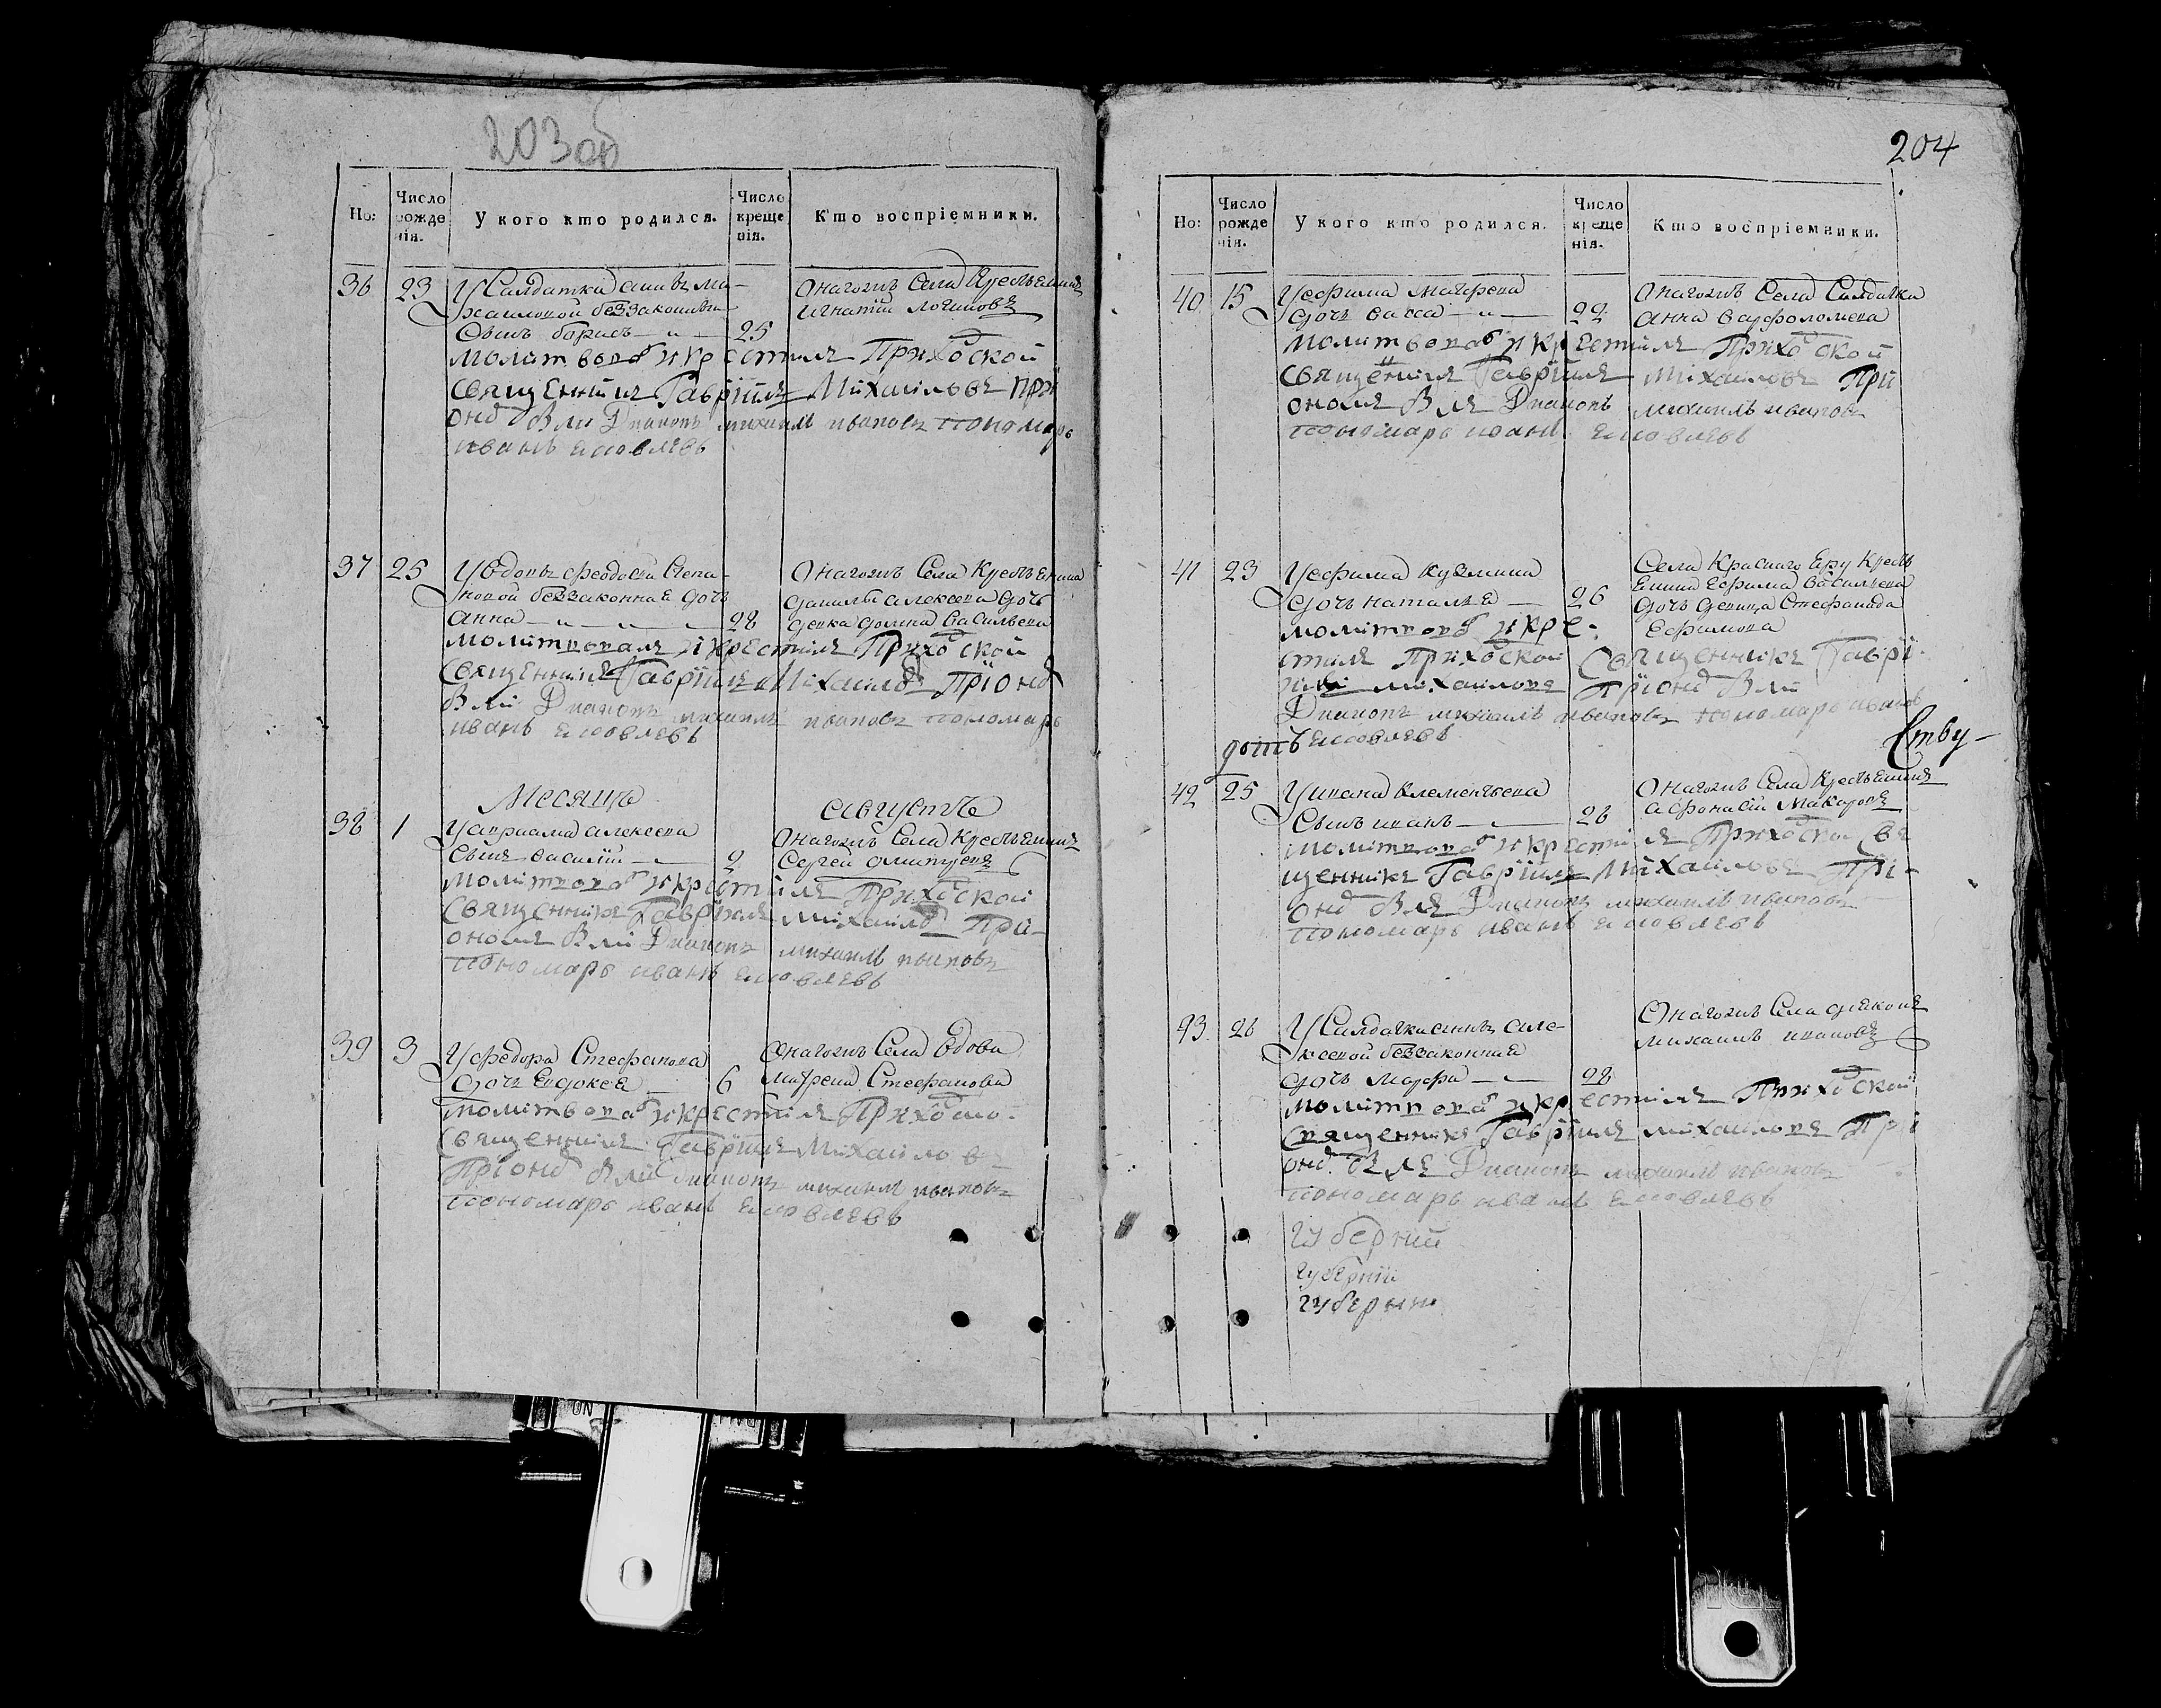 203 об
Но:
Число рожденія.
У кого кто родился.
Число крещенія.
Кто воспріемники.
36 23 У Салдатки анны ми-
хаиловой беззаконный
Сынъ борисъ 25
Онагожъ Села Крестьянинъ
игнатій логиновъ
молитвовалъ и крестилъ Приходской
священникъ Гавріилъ Михаиловъ при
ономъ были Диаконъ михаилъ ивановъ пономарь
иванъ яковлевъ
37 25 У вдовы феодосіи Степа-
новой беззаконная дочь
анна 28
Онагожъ Села Крестьянина
данилы алексеева дочь
девка Васильева
молитвовалъ и крестилъ Приходской
Священникъ Гавріилъ Михаиловъ При ономъ
были Диаконъ михаилъ ивановъ пономарь
иванъ яковлевъ
Месяцъ августъ
38 1 алексеева
Сынъ василій 2
Онагожъ Села Крестьянинъ
Сергей
молитвовалъ и крестилъ Приходской
Священникъ Гавріилъ михаиловъ При
ономъ были Диаконъ михаилъ ивановъ
пономарь иванъ яковлевъ
39 3 У федора Стефанова
дочь Евдокея 6
Онагожъ Села вдова
матрена Стефанова
молитвовалъ и крестилъ Приходско
Священникъ Гавріилъ Михаиловъ
При ономъ были Диаконъ михаилъ ивановъ
пономарь иванъ яковлевъ
204
Но:
Число рожденія.
У кого кто родился.
Число крещенія.
Кто воспріемники.
40 15 У ефима
дочь васса 22
Онагожъ Села Салдатка
анна варфоломеева
молитвовалъ и крестилъ Приходской
священникъ Гавріилъ михаиловъ При
ономъ былъ Диаконъ михаилъ ивановъ
пономарь иванъ яковлевъ
41 23 У ефима кузмина
дочь наталья 26
Села Краснаго Яру Кресть
янина Ефима васильева
дочь девица Стефанида
Ефимова
молитвовалъ и кре-
стилъ Приходской Священникъ Гаврі-
илъ михаиловъ При ономъ были
Диаконъ михаилъ ивановъ пономарь иванъ
яковлевъ
Ству-
42 25 У ивана клементьева
Сынъ иванъ 28
Онагожъ Села Крестьянинъ
афонасій Макаровъ
молитвовалъ и крестилъ Приходской Свя
щенникъ Гавріилъ Михаиловъ При-
ономъ былъ Диаконъ михаилъ ивановъ
пономарь иванъ яковлевъ
43. 26 У Салдатки анны але-
ксеевой беззаконная
дочь марфа 28
Онагожъ Села диаконъ
михаилъ ивановъ
молитвовалъ и крестилъ Приходской
священникъ Гавріилъ михаиловъ При
ономъ былъ Диаконъ михаилъ ивановъ
пономарь иванъ яковлевъ
губерніи
губерніи
губерніи